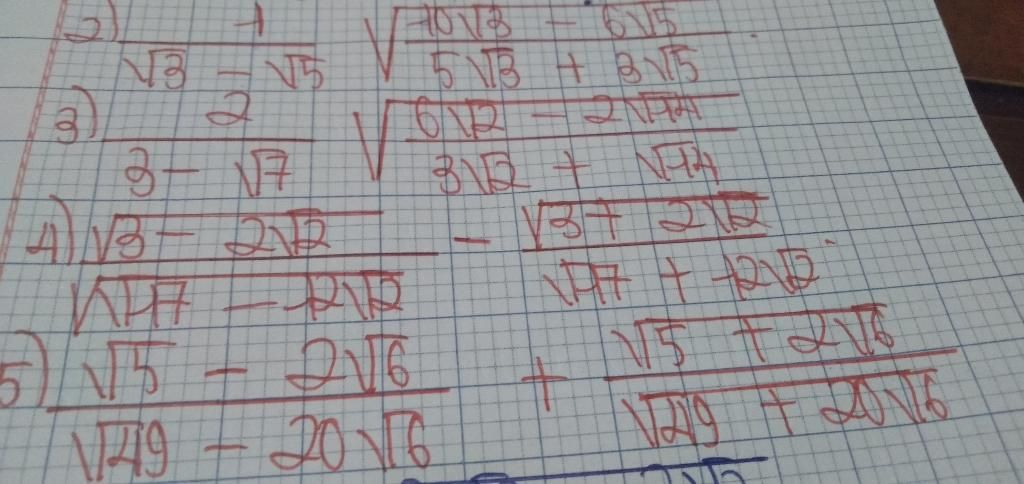 2) 1/(√3 - √5) √((10√3 - 6√5)/(5√3 + 3√5)).
3) 2/(3 - √7) √((6√2 - 2√14)/(3√2 + √14))
4) √(3 - 2√2)/√(17 - 12√2) - √(3 + 2√2)/√(17 + 12√2)
5) √(5 - 2√6)/√(49 - 20√6) + √(5 + 2√6)/√(49 + 20√6)